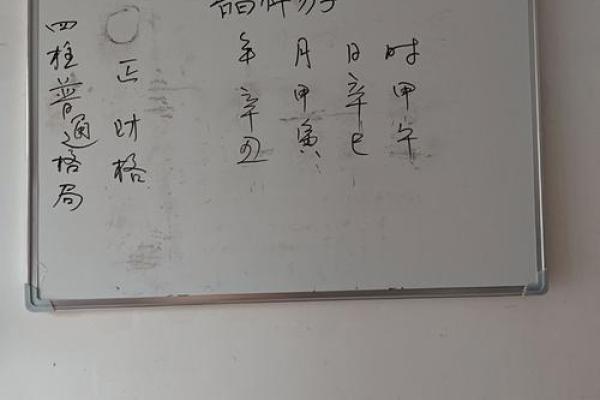 四柱普通格局
正财格
年 月 日 时
辛 甲 辛 甲
丑 寅 巳 午